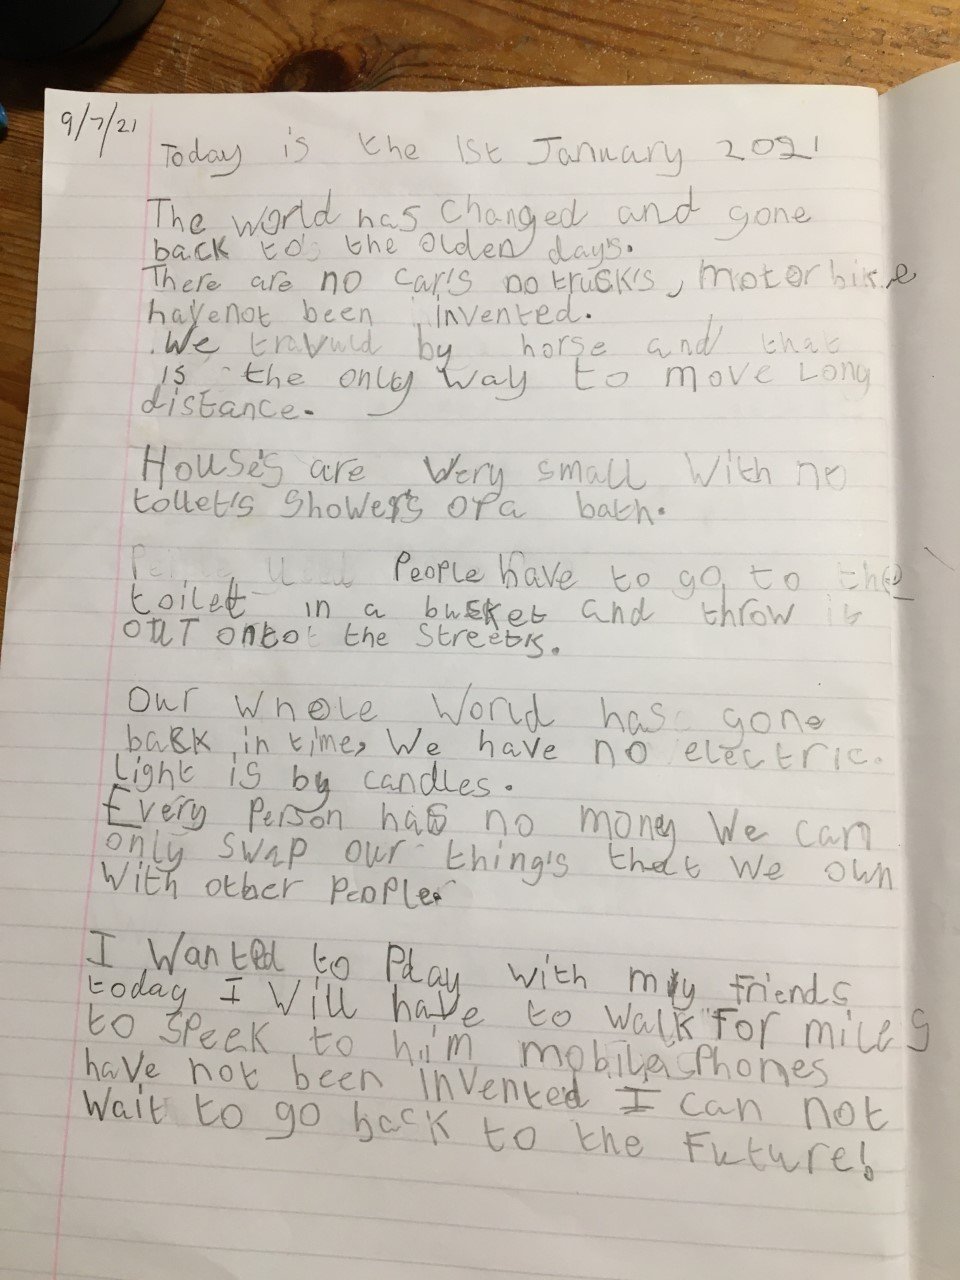 9/7/21
Today is the 1st January 2021
The world has changed and gone
back to the olden days.
There are no car's no truck's, motorbike
have not been invented.
We travuld by horse and that
is the only way to move long
distance.
House's are very small with no
toilet's shower's or a bath.
People have to go to the
toilet in a bucket and throw it
out onto the streets.
Our whole world has gone
back in time, We have no electric.
Light is by candles.
Every person has no money We can
only swap our thing's that we own
with other people.
I wanted to play with my friends
today I will have to walk for miles
to speek to him mobile phones
have not been invented I can not
wait to go back to the future!